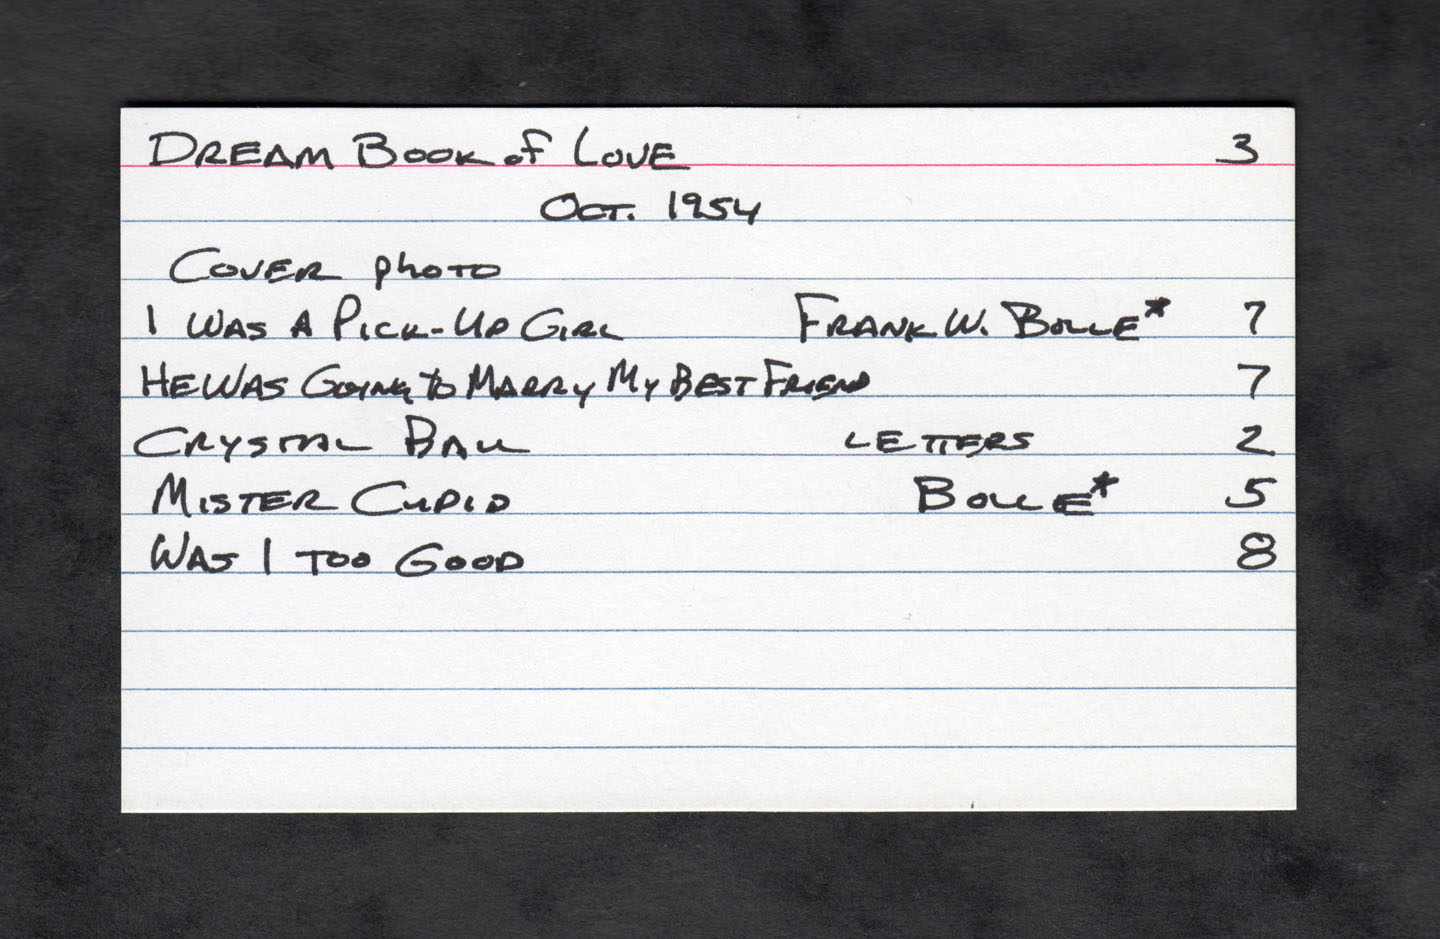 DREAM BOOK of LOVE 3
OCT. 1954
COVER PHOTO
I WAS A PICK-UP GIRL FRANK W. BOLLE* 7
HE WAS GOING TO MARRY MY BEST FRIEND 7
CRYSTAL BALL LETTERS 2
MISTER CUPID BOLLE* 5
WAS I TOO GOOD 8